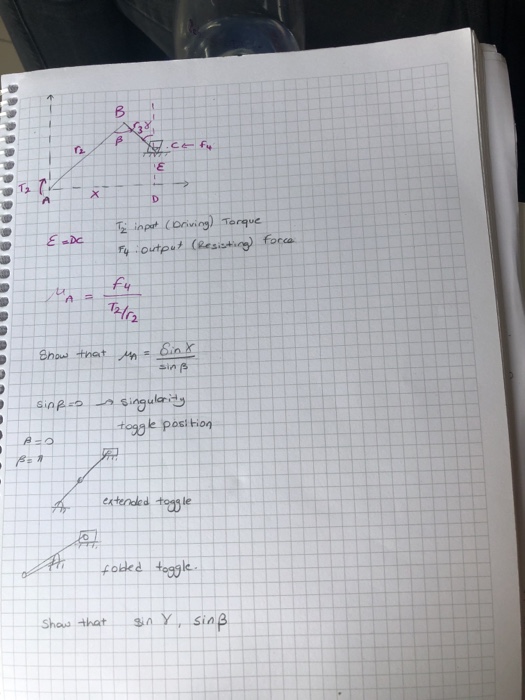 B
r3 γ
r2
β
C ← F4
E
T2
A
x
D
T2 input (Driving) Torque
E = DC
F4: output (Resisting) Force
μA = F4
T2/r2
Show that μA = Sin γ
sin β
sin β=0 → singularity
toggle position
β = 0
β = π
extended toggle
folded toggle.
Show that sin γ, sin β